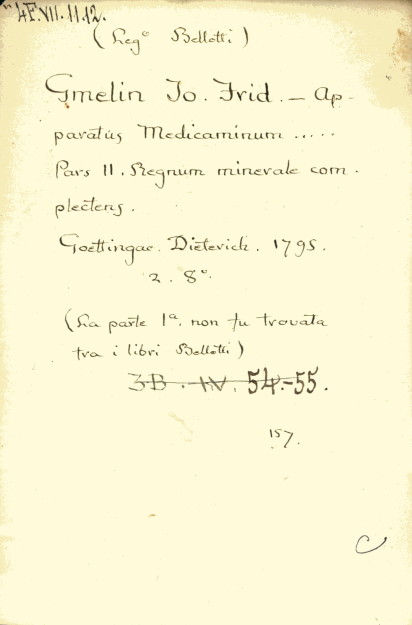 4F.VII.11.12.
(Leg° Bellotti)
Gmelin Jo. Frid. — Ap-
paratus Medicaminum .....
Pars II. Regnum minerale com-
plectens.
Goettingae. Dieterich. 1795.
2. 8°.
(La parte 1ª. non fu trovata
tra i libri Bellotti)
3B. IV. 54.-55.
157.
C